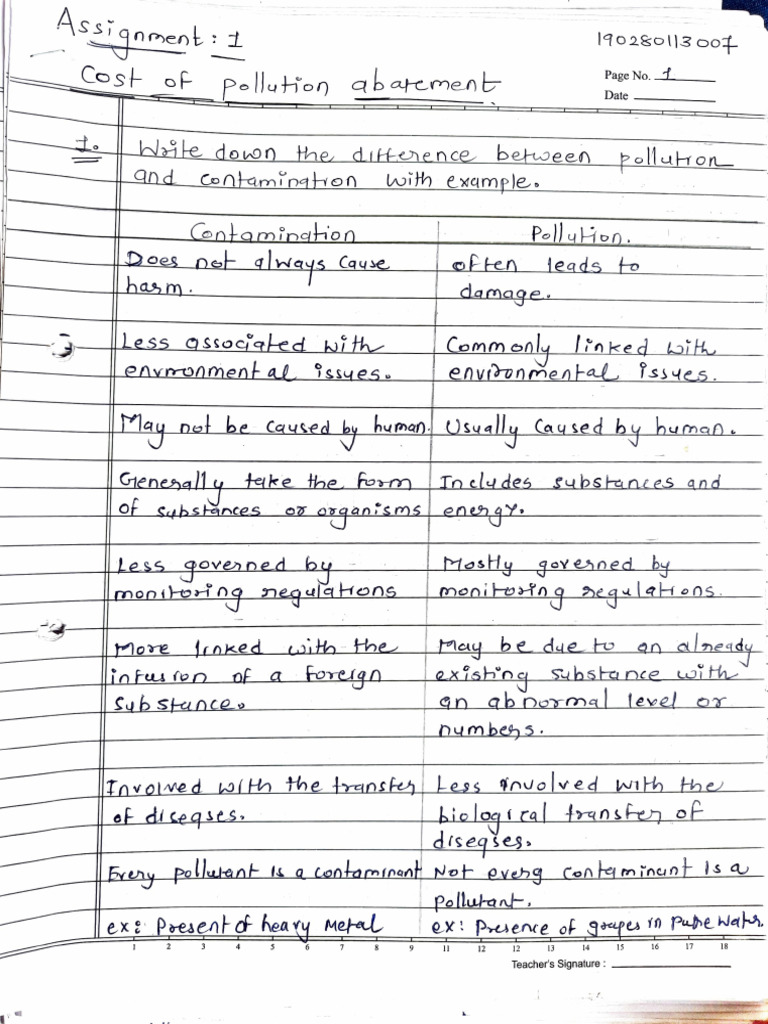 Assignment: 1
190280113007
Cost of pollution abatement
Page No. 1
Date
1. Write down the difference between pollution
and contamination with example.
Contamination Pollution.
Does not always cause often leads to
harm. damage.
Less associated with Commonly linked with
environmental issues. environmental issues.
May not be caused by human. Usually caused by human.
Generally take the form Includes substances and
of substances or organisms energy.
Less governed by Mostly governed by
monitoring regulations monitoring regulations.
More linked with the May be due to an already
infusion of a foreign existing substance with
substance. an abnormal level or
numbers.
Involved with the transfer Less involved with the
of diseases. biological transfer of
diseases.
Every pollutant is a contaminant Not every contaminant is a
pollutant.
ex: Present of heavy metal ex: Presence of grapes in pure water.
1 2 3 4 5 6 7 8 9 11 12 12 13 14 15 16 17 18
Teacher's Signature :